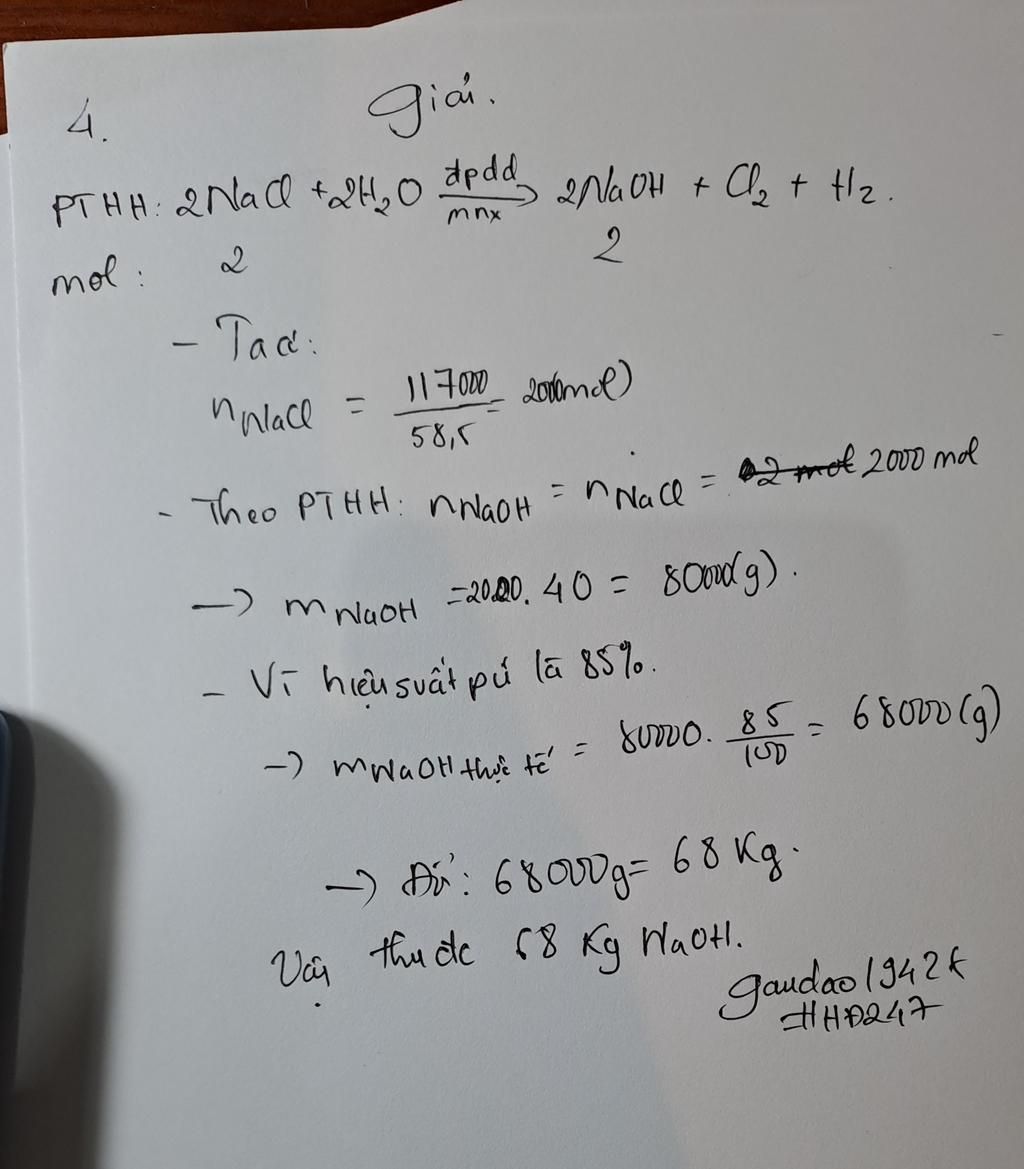 4. Giải.
PTHH: 2NaCl + 2H₂O \xrightarrow[mnx]{đpdd} 2NaOH + Cl₂ + H₂.
mol: 2 2
- Ta có:
nNaCl = \frac{117000}{58,5} = 2000(mol)
- Theo PTHH: nNaOH = nNaCl = 2000 mol
→ mNaOH = 2000.40 = 80000(g).
- Vì hiệu suất pứ là 85%.
→ mNaOH thực tế = 80000. \frac{85}{100} = 68000(g)
→ Đổi: 68000g = 68 Kg.
Vậy thu đc 68 Kg NaOH.
gaudao1942k
#HĐ247